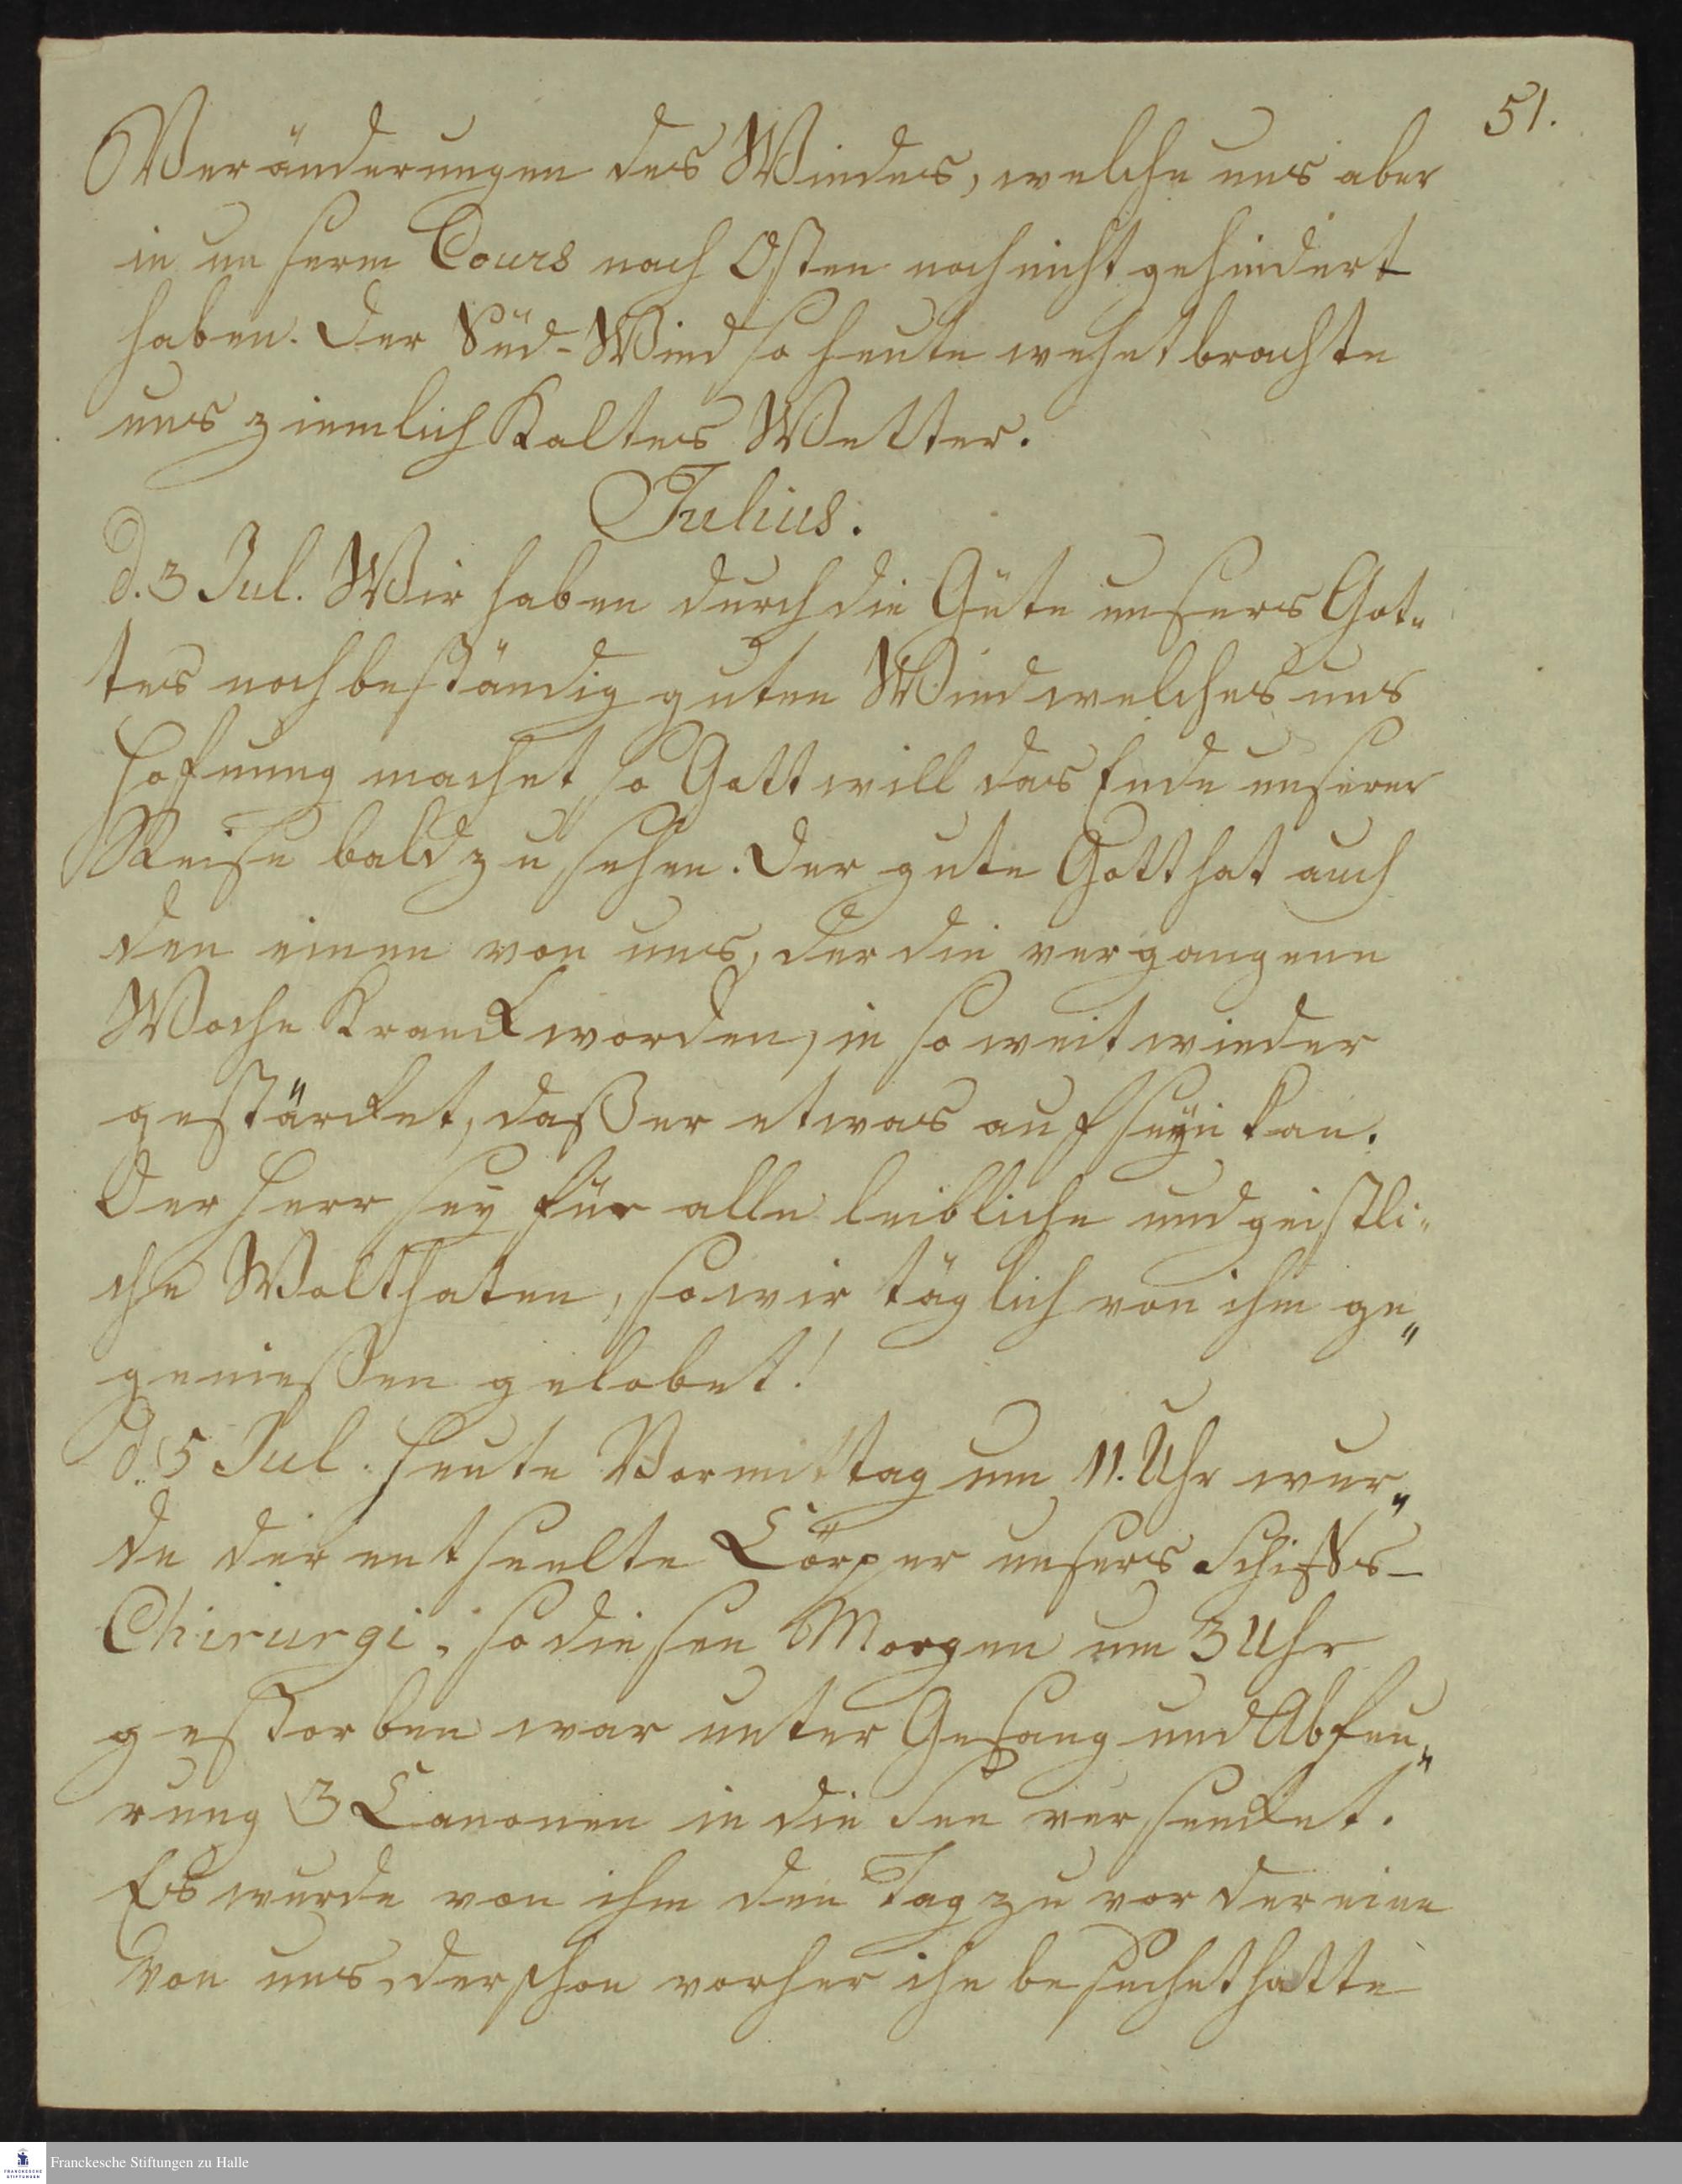 51.
Veränderungen des Windes, welche uns aber
in unserm Cours nach Osten noch nicht gehindert
haben. Der Süd-Wind so heute wehet brachte
uns ziemlich Kaltes Wetter.
Julius.
d. 3 Jul. Wir haben durch die Güte unsers Got„
tes noch beständig guten Wind welches uns
Hofnung machet so Gott will das Ende unserer
Reise bald zu sehen. Der gute Gott hat auch
den einen von uns, der die vergangene
Woche Kranck worden, in so weit wieder
gestärcket, daß er etwas auf seyn kan.
Der Herr sey für alle leibliche und geistli„
che Wolthaten, so wir täglich von ihm ge„
genießen gelobet!
d. 5 Jul. Heute Vormittag um 11. Uhr wur„
de der entseelte Cörper unsers Schiffs-
Chirurgi, so diesen Morgen um 3 Uhr
gestorben war unter Gesang und Abfeu„
rung 3 Canonen in die See versencket.
Es wurde von ihm den Tag zu vor der eine
von uns, der schon vorher ihn besuchet hatte
Franckesche Stiftungen zu Halle
FRANCKESCHE
STIFTUNGEN